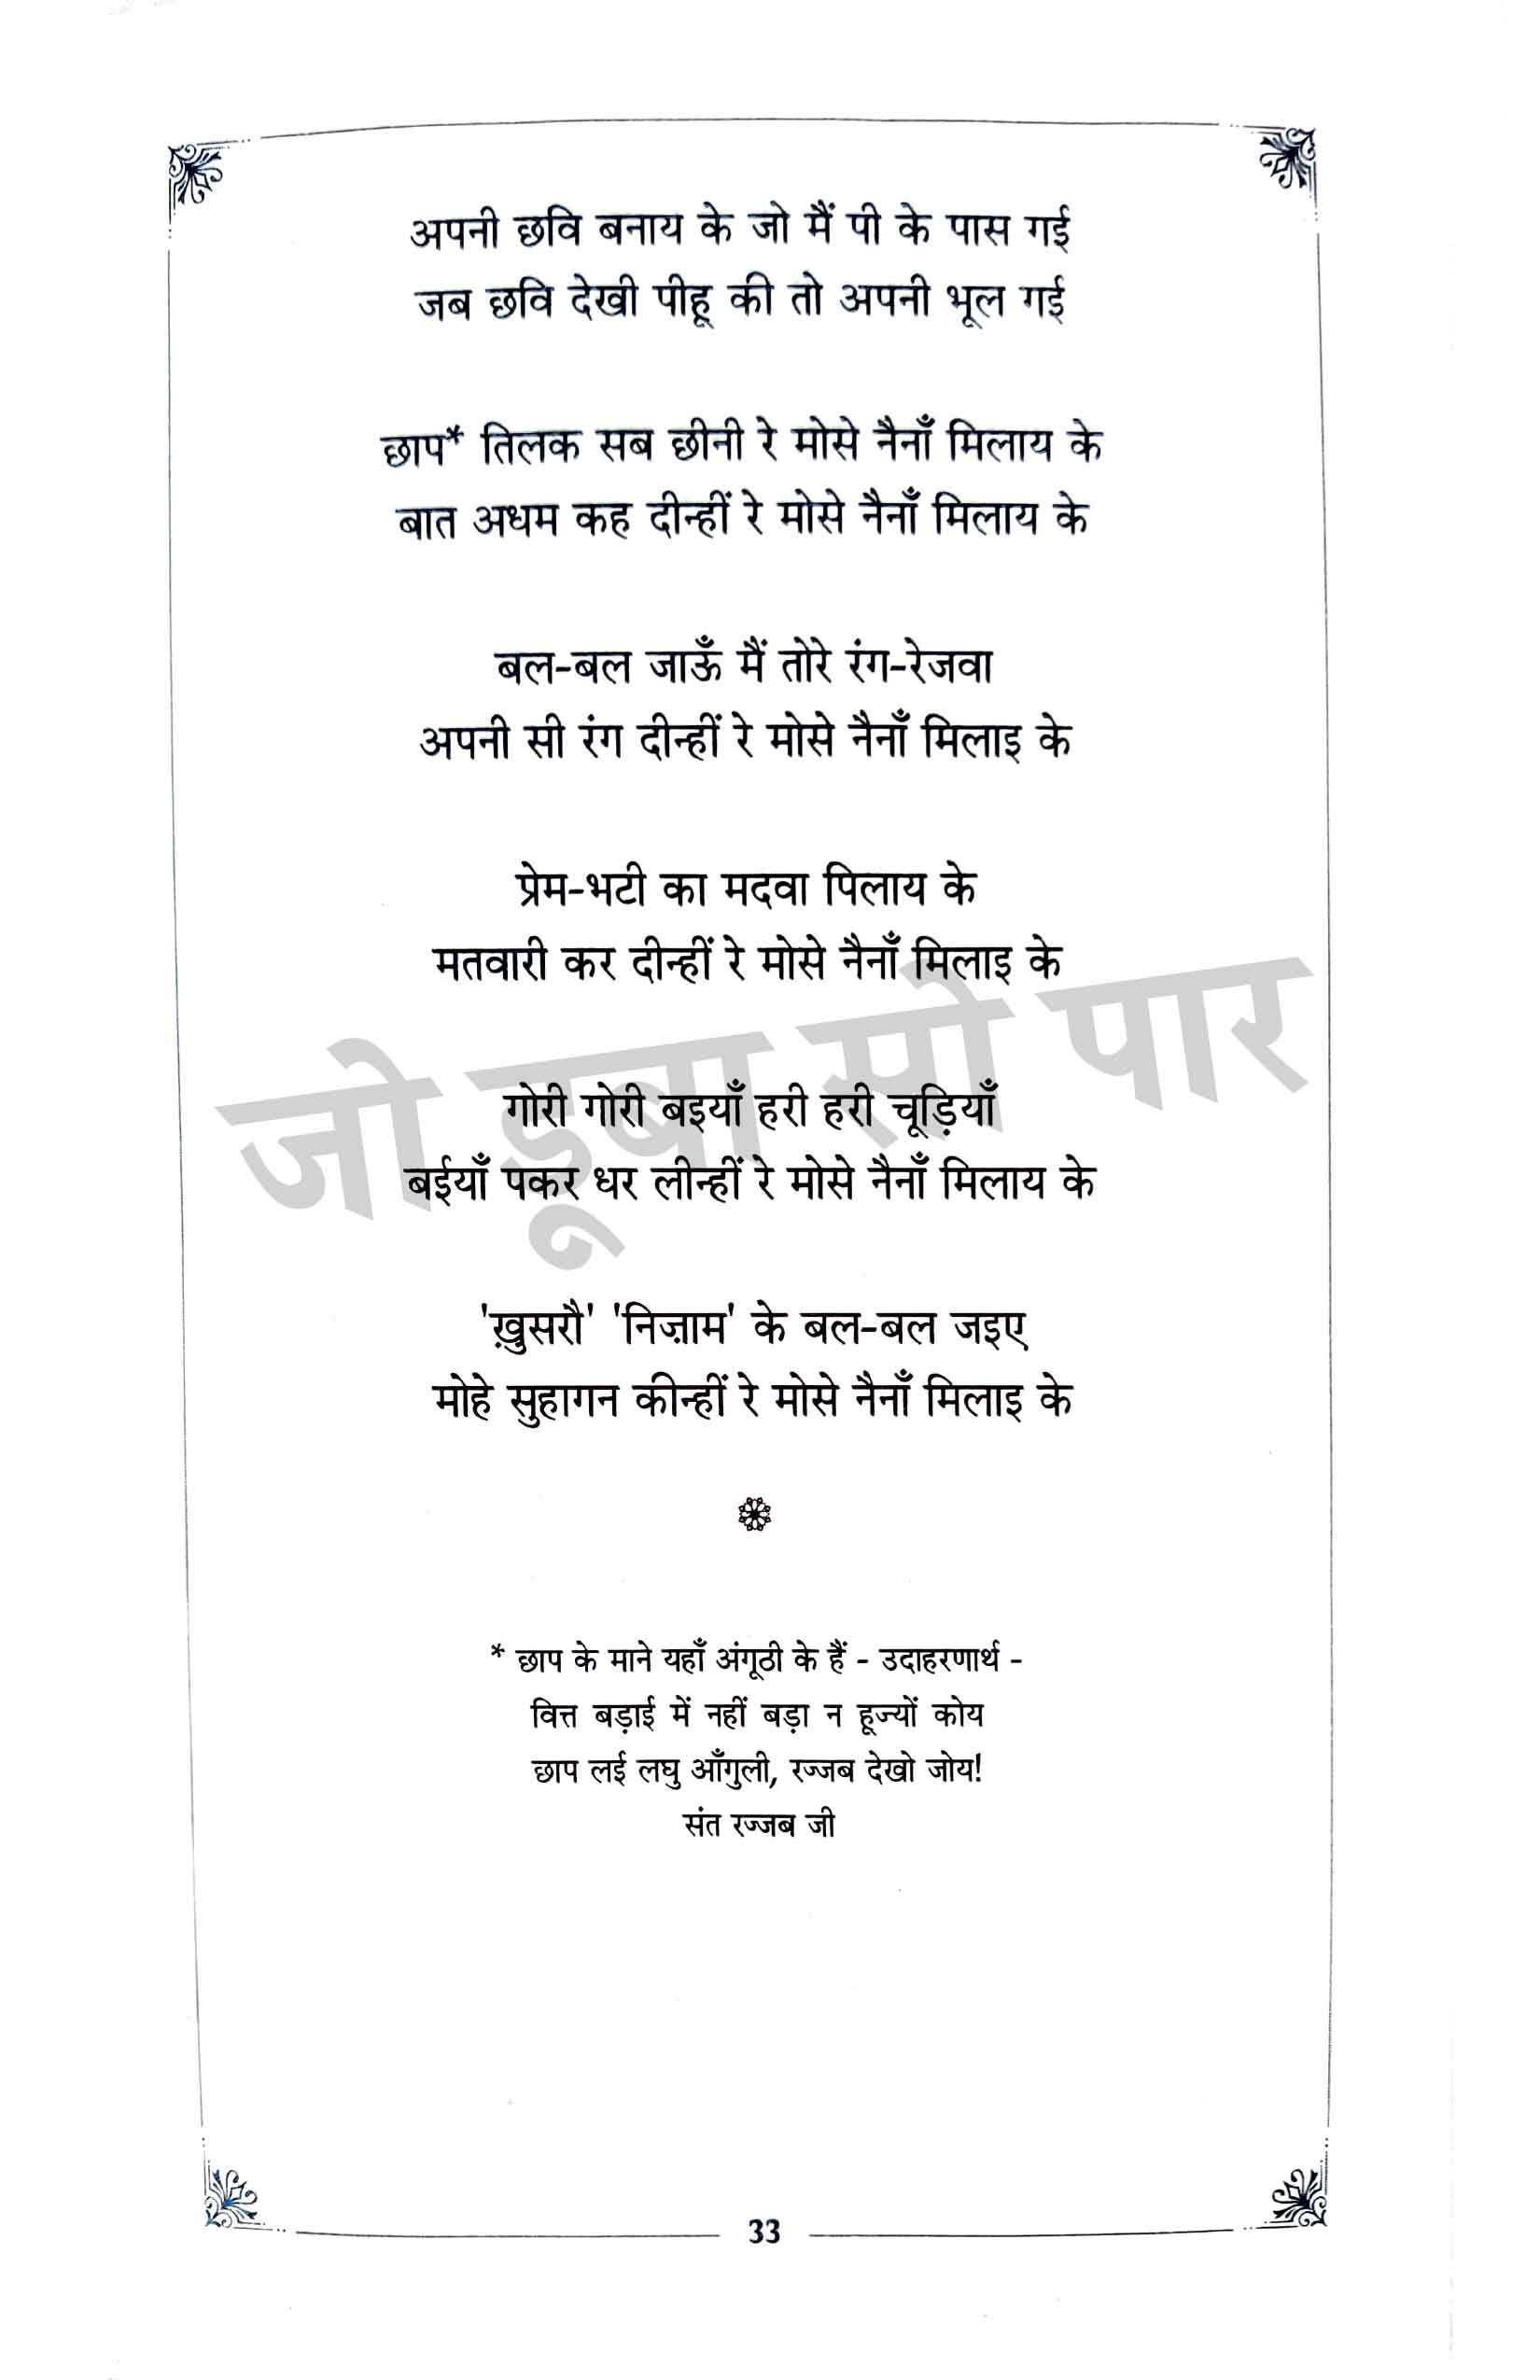 अपनी छवि बनाय के जो मैं पी के पास गई
जब छवि देखी पीहू की तो अपनी भूल गई
छाप* तिलक सब छीनी रे मोसे नैनाँ मिलाय के
बात अधम कह दीन्हीं रे मोसे नैनाँ मिलाय के
बल-बल जाऊँ मैं तोरे रंग-रेजवा
अपनी सी रंग दीन्हीं रे मोसे नैनाँ मिलाइ के
प्रेम-भटी का मदवा पिलाय के
मतवारी कर दीन्हीं रे मोसे नैनाँ मिलाइ के
जो डूबा सो पार
गोरी गोरी बइयाँ हरी हरी चूड़ियाँ
बईयाँ पकर धर लीन्हीं रे मोसे नैनाँ मिलाय के
'ख़ुसरौ' 'निज़ाम' के बल-बल जइए
मोहे सुहागन कीन्हीं रे मोसे नैनाँ मिलाइ के
* छाप के माने यहाँ अंगूठी के हैं - उदाहरणार्थ -
वित्त बड़ाई में नहीं बड़ा न हूज्यों कोय
छाप लई लघु आँगुली, रज्जब देखो जोय!
संत रज्जब जी
33